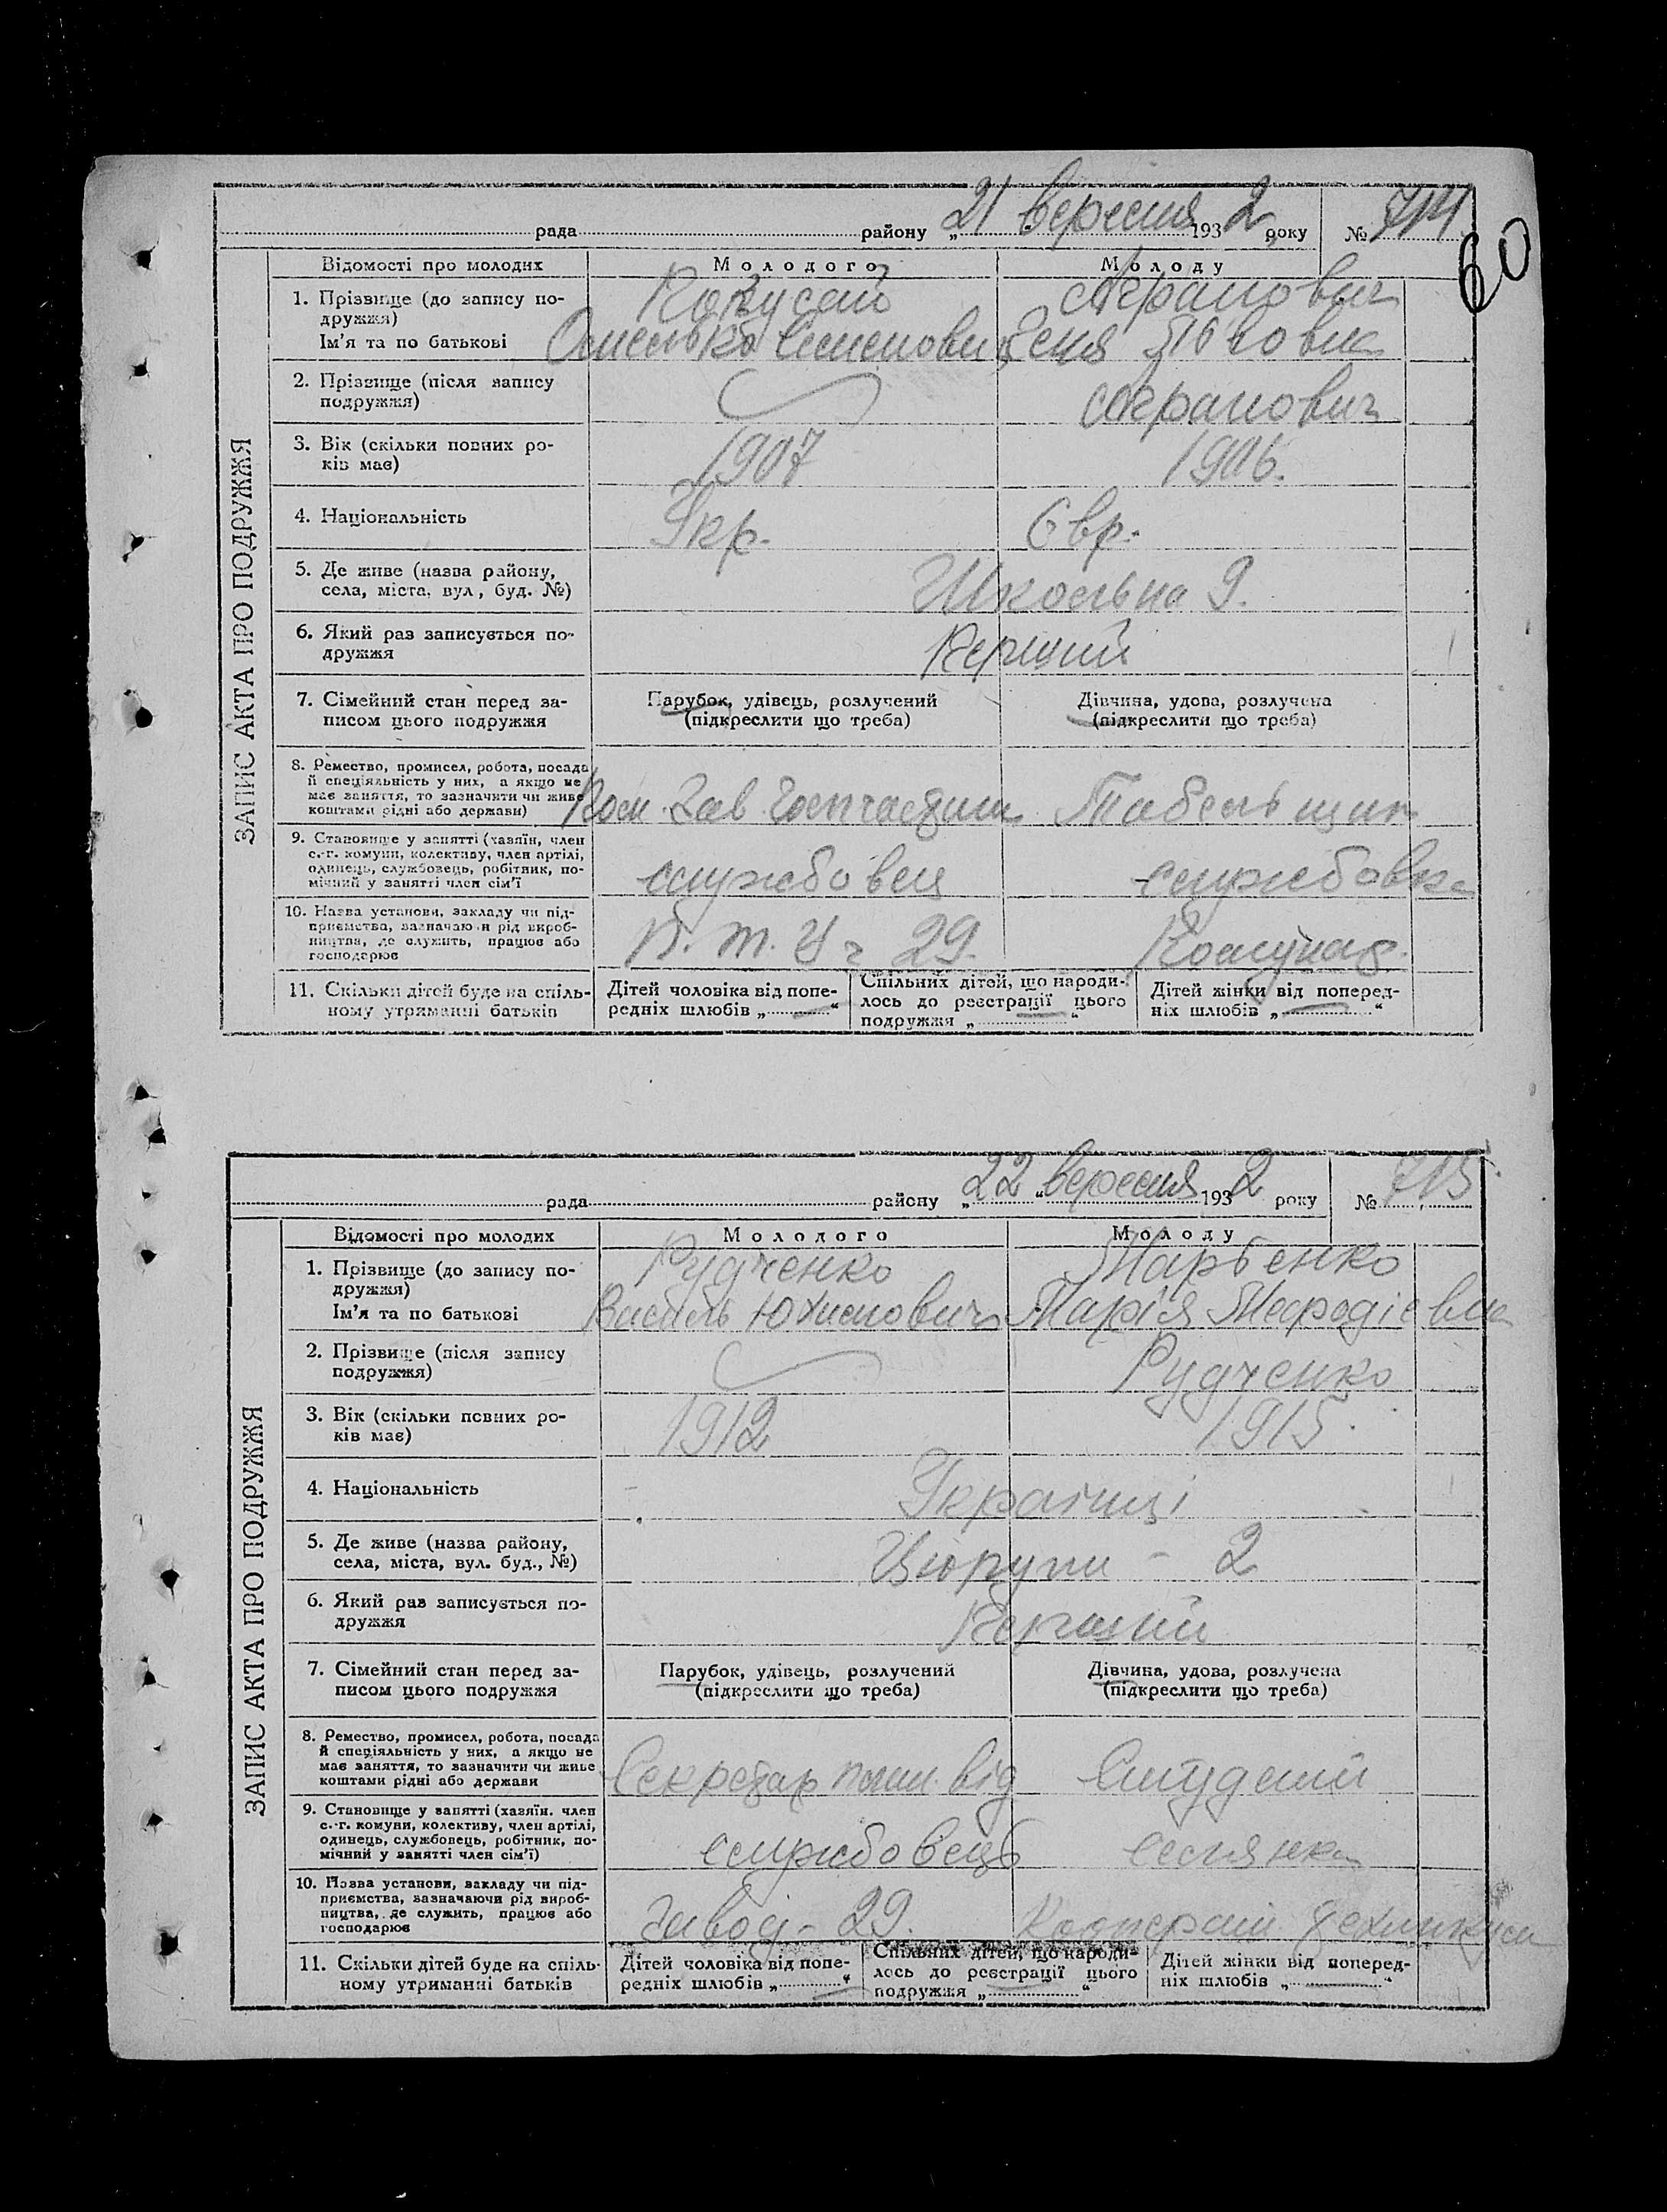 60
рада района „21" вересня 1932 року № 714
ЗАПИС АКТА ПРО ПОДРУЖЖЯ
Відомості про молодих Молодого Молоду
1. Прізвище (до запису по-
дружжя) Агранович
Ім'я та по батькові Львовна
2. Прізвище (після запису
подружжя) Агранович
3. Вік (скільки повних ро-
ків має) 1907 1906.
4. Національність Укр. Євр.
5. Де живе (назва району,
села, міста, вул, буд. №) Шкільна 9.
6. Який раз записується по-
дружжя Перший
7. Сімейний стан перед за-
писом цього подружжя
Парубок, удівець, розлучений
(підкреслити що треба)
Дівчина, удова, розлучена
(підкреслити що треба)
8. Ремество, промисел, робота, посада
й спеціяльність у них, а якщо не
має заняття, то зазначити чи живе
коштами рідні або держави) Пом. Зав. Табельщик
9. Становище у занятті (хазяїн, член
с.-г. комуни, колективу, член артілі,
одинець, службовець, робітник, по-
мічний у занятті член сім'ї службовец службовка
10. Назва установи, закладу чи під-
приємства, зазначаючи рід вироб-
ництва, де служить, працює або
господарює 29. Комунар.
11. Скільки дітей буде на спіль-
ному утриманні батьків
Дітей чоловіка від попе-
редніх шлюбів „—"
Спільних дітей, що народи-
лось до реєстрації цього
подружжя „—"
Дітей жінки від поперед-
ніх шлюбів „—"
рада району „22" вересня 1932 року № 715
ЗАПИС АКТА ПРО ПОДРУЖЖЯ
Відомості про молодих Молодого Молоду
1. Прізвище (до запису по-
дружжя) Рудченко Марченко
Ім'я та по батькові Василь Юхимович Марія
2. Прізвище (після запису
подружжя) Рудченко
3. Вік (скільки повних ро-
ків має) 1912 1915.
4. Національність Українці
5. Де живе (назва району,
села, міста, вул. буд., №) Цюрупи - 2
6. Який раз записується по-
дружжя Перший
7. Сімейний стан перед за-
писом цього подружжя
Парубок, удівець, розлучений
(підкреслити що треба)
Дівчина, удова, розлучена
(підкреслити що треба)
8. Ремество, промисел, робота, посада
й спеціяльність у них, а якщо не
має заняття, то зазначити чи живе
коштами рідні або держави Секретар від Студент
9. Становище у занятті (хазяїн. член
с.-г. комуни, колективу, член артілі,
одинець, службовець, робітник, по-
мічний у занятті член сім'ї) службовець селянка
10. Назва установи, закладу чи під-
приємства, зазначаючи рід вироб-
ництва, де служить, працює або
господарює Завод - 29.
11. Скільки дітей буде на спіль-
ному утриманні батьків
Дітей чоловіка від попе-
редніх шлюбів „—"
Спільних дітей, що народи-
лось до реєстрації цього
подружжя „—"
Дітей жінки від поперед-
ніх шлюбів „—"